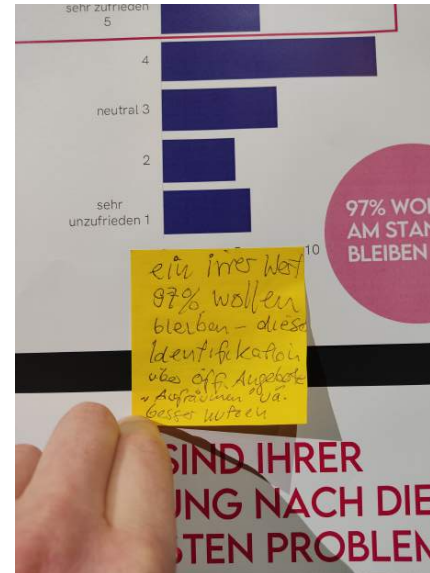 sehr zufrieden
5
4
neutral 3
2
sehr
unzufrieden 1
10
97% WO
AM STAN
BLEIBEN
ein irrer Wert
97% wollen
bleiben – diese
Identifikation
über öff. Angebote
"Aufräumen" uä.
besser nutzen
SIND IHRER
UNG NACH DIE
TEN PROBLEM